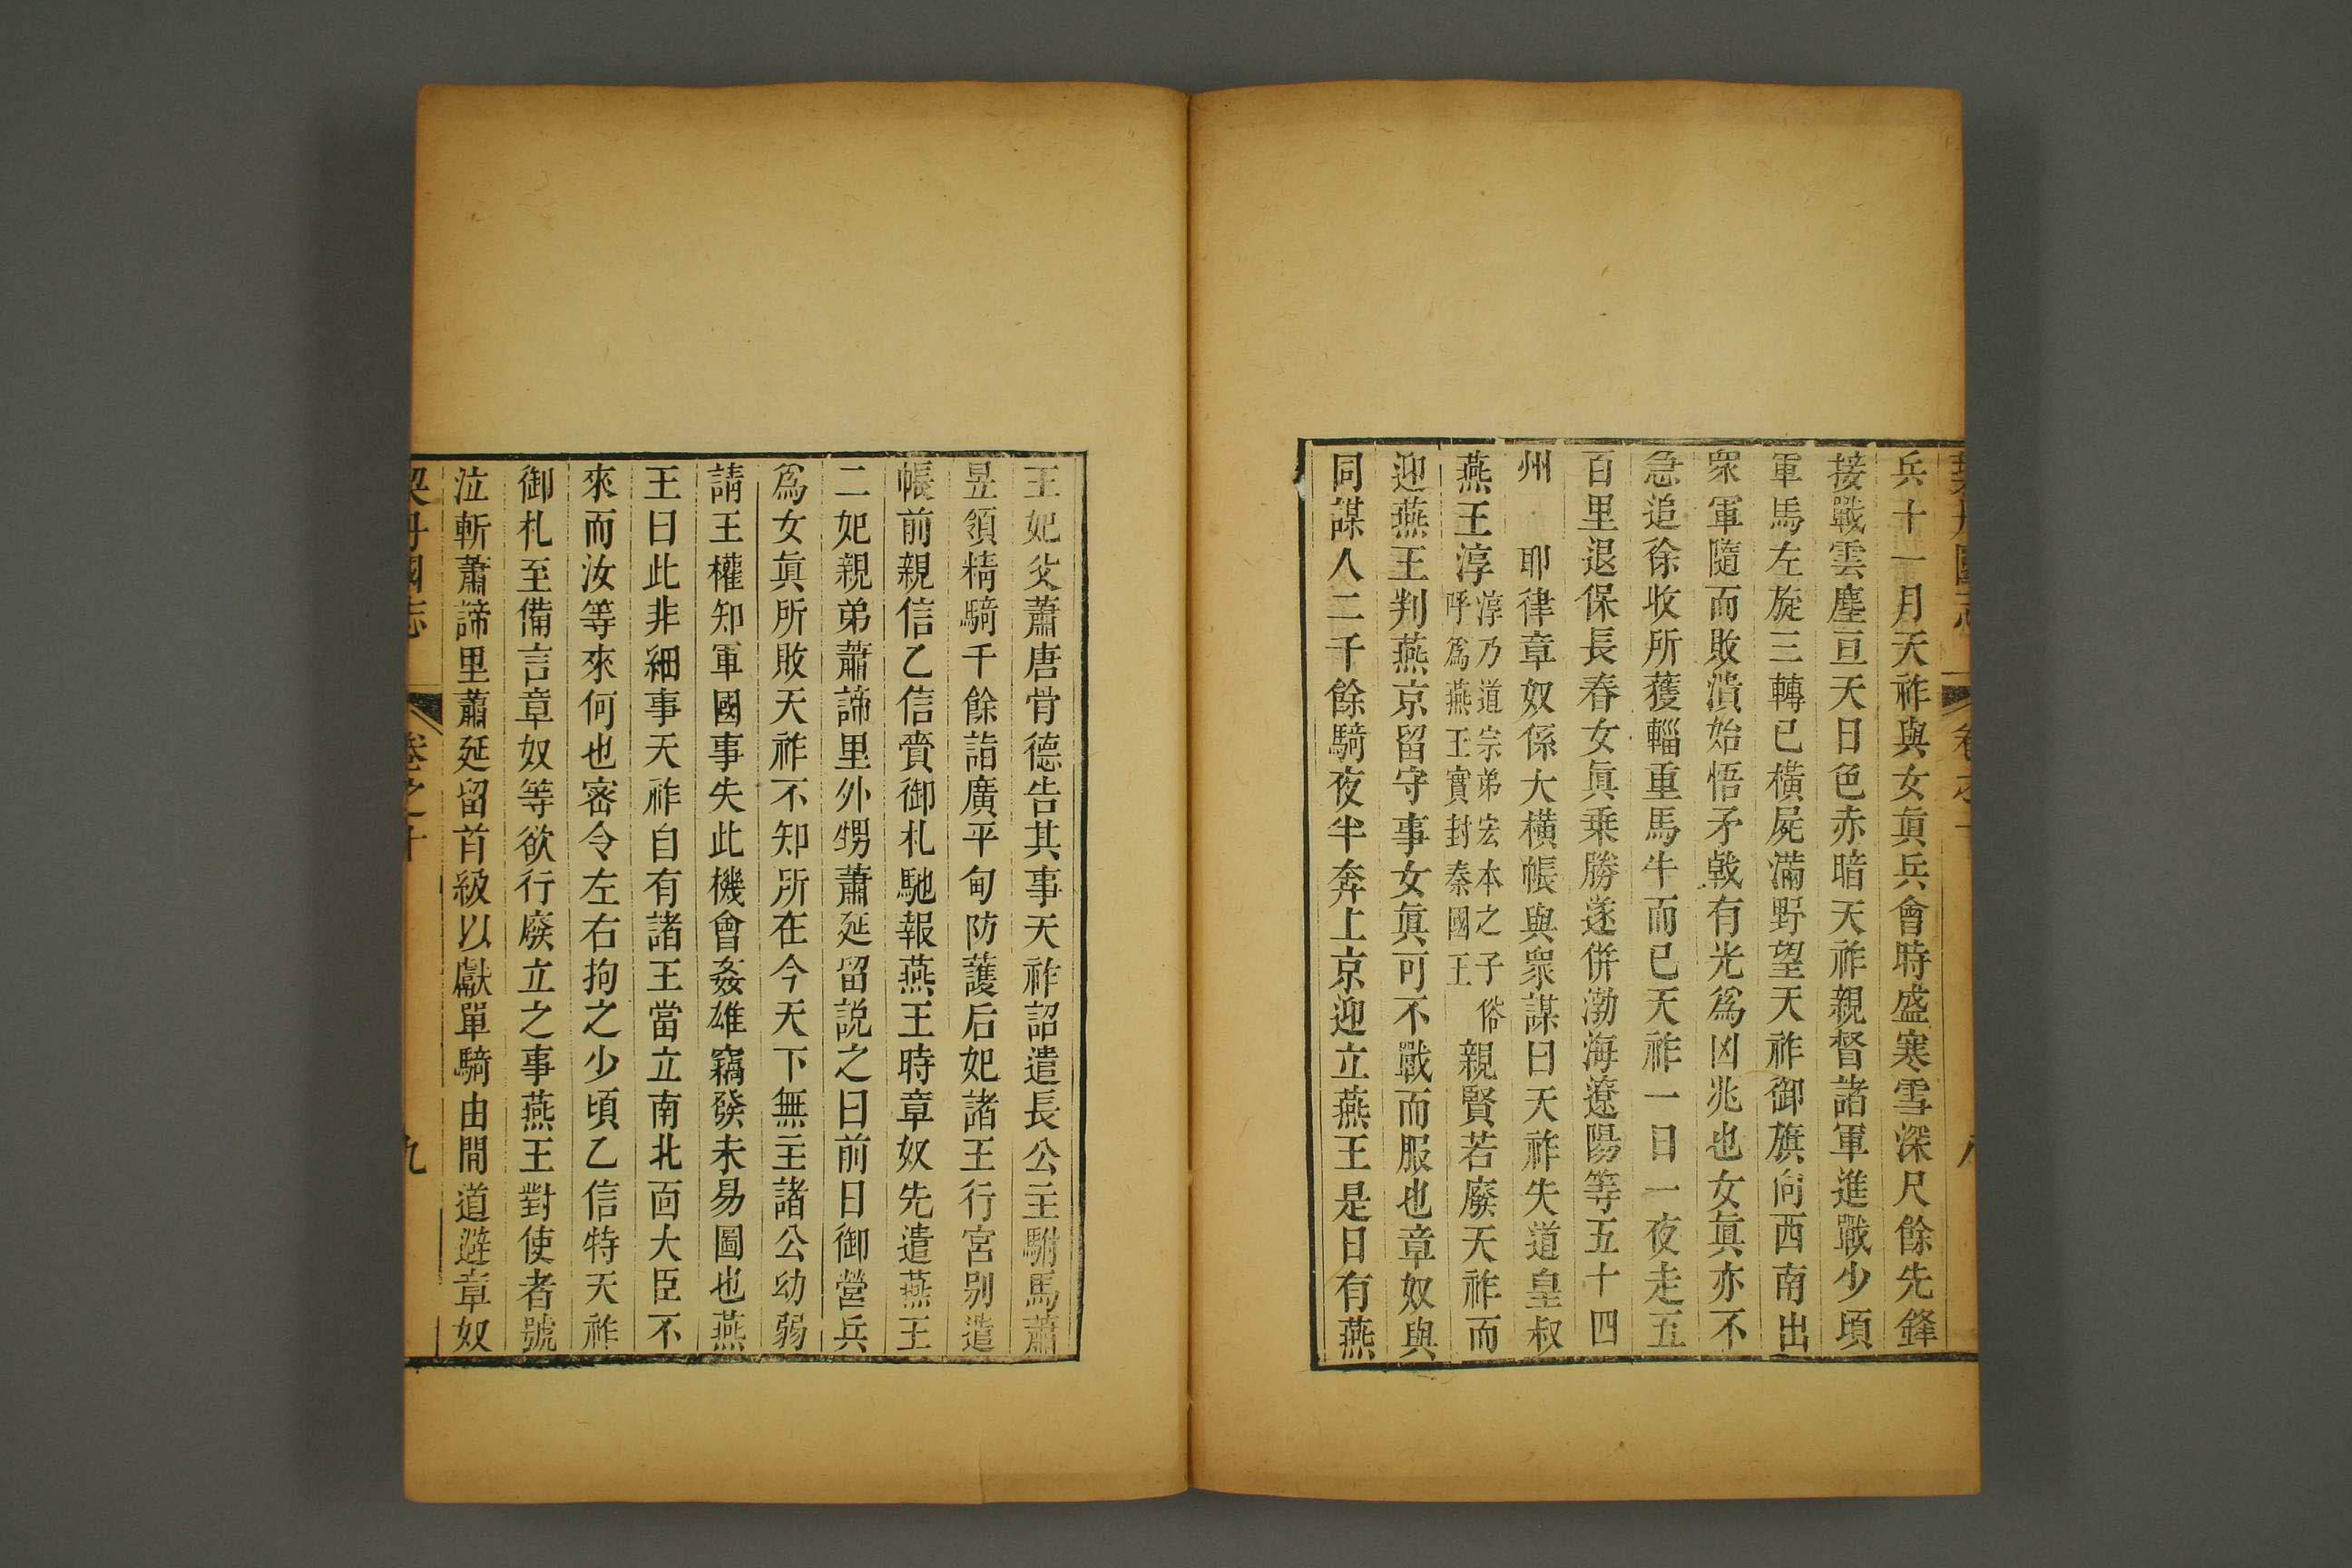 契丹國志 卷之十 八
兵十一月天祚與女眞兵會時盛寒雪深尺餘先鋒
接戰雲塵亘天日色赤暗天祚親督諸軍進戰少頃
軍馬左旋三轉已橫屍滿野望天祚御旗向西南出
衆軍隨而敗潰始悟矛戟有光爲凶兆也女眞亦不
急追徐收所獲輜重馬牛而已天祚一日一夜走五
百里退保長春女眞乗勝遂併渤海遼陽等五十四
州 耶律章奴係大橫帳與衆謀曰天祚失道皇叔
燕王淳淳乃道宗弟宏本之子俗呼爲燕王實封秦國王親賢若廢天祚而
迎燕王判燕京留守事女眞可不戰而服也章奴與
同謀人二千餘騎夜半奔上京迎立燕王是日有燕
王妃父蕭唐骨德告其事天祚詔遣長公主駙馬蕭
昱領精騎千餘詣廣平甸防護后妃諸王行宮别遣
帳前親信乙信賫御札馳報燕王時章奴先遣燕王
二妃親弟蕭諦里外甥蕭延留説之曰前日御營兵
爲女眞所敗天祚不知所在今天下無主諸公幼弱
請王權知軍國事失此機會姦雄竊發未易圖也燕
王曰此非細事天祚自有諸王當立南北面大臣不
來而汝等來何也密令左右拘之少頃乙信特天祚
御札至備言章奴等欲行廢立之事燕王對使者號
泣斬蕭諦里蕭延留首級以獻單騎由間道避章奴
契丹國志 卷之十 九